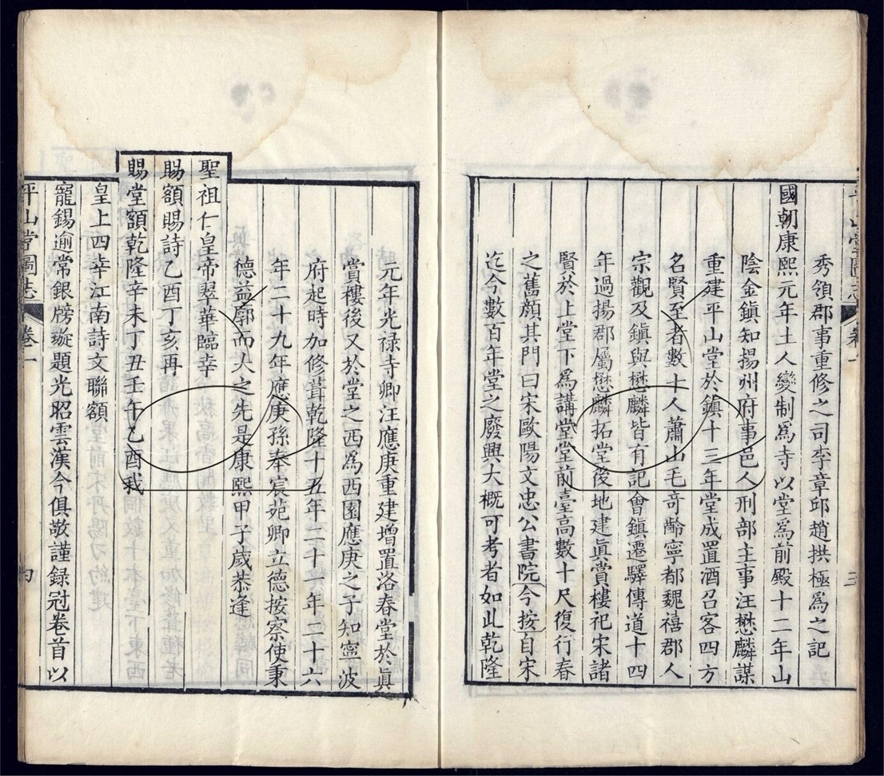 秀領郡事重修之司李章邱趙拱極爲之記
國朝康熙元年土人變制爲寺以堂爲前殿十二年山
陰金鎭知揚州府事邑人刑部主事汪懋麟謀
重建平山堂於鎭十三年堂成置酒召客四方
名賢至者數十人蕭山毛奇齡寧都魏禧郡人
宗觀及鎭與懋麟皆有記會鎭遷驛傳道十四
年過揚郡屬懋麟拓堂後地建眞賞樓祀宋諸
賢於上堂下爲講堂堂前臺高數十尺復行春
之舊顏其門曰宋歐陽文忠公書院今按自宋
迄今數百年堂之廢興大概可考者如此乾隆
平山堂圖志 卷一 三
元年光祿寺卿汪應庚重建增置洛春堂於眞
賞樓後又於堂之西爲西園應庚之子知寧波
府起時加修葺乾隆十五年二十一年二十六
年二十九年應庚孫奉宸苑卿立德按察使秉
德益廓而大之先是康熙甲子歲恭逢
聖祖仁皇帝翠華臨幸
賜額賜詩乙酉丁亥再
賜堂額乾隆辛未丁丑壬午乙酉我
皇上四幸江南詩文聯額
寵錫逾常銀牓璇題光昭雲漢今俱敬謹録冠卷首以
平山堂圖志 卷一